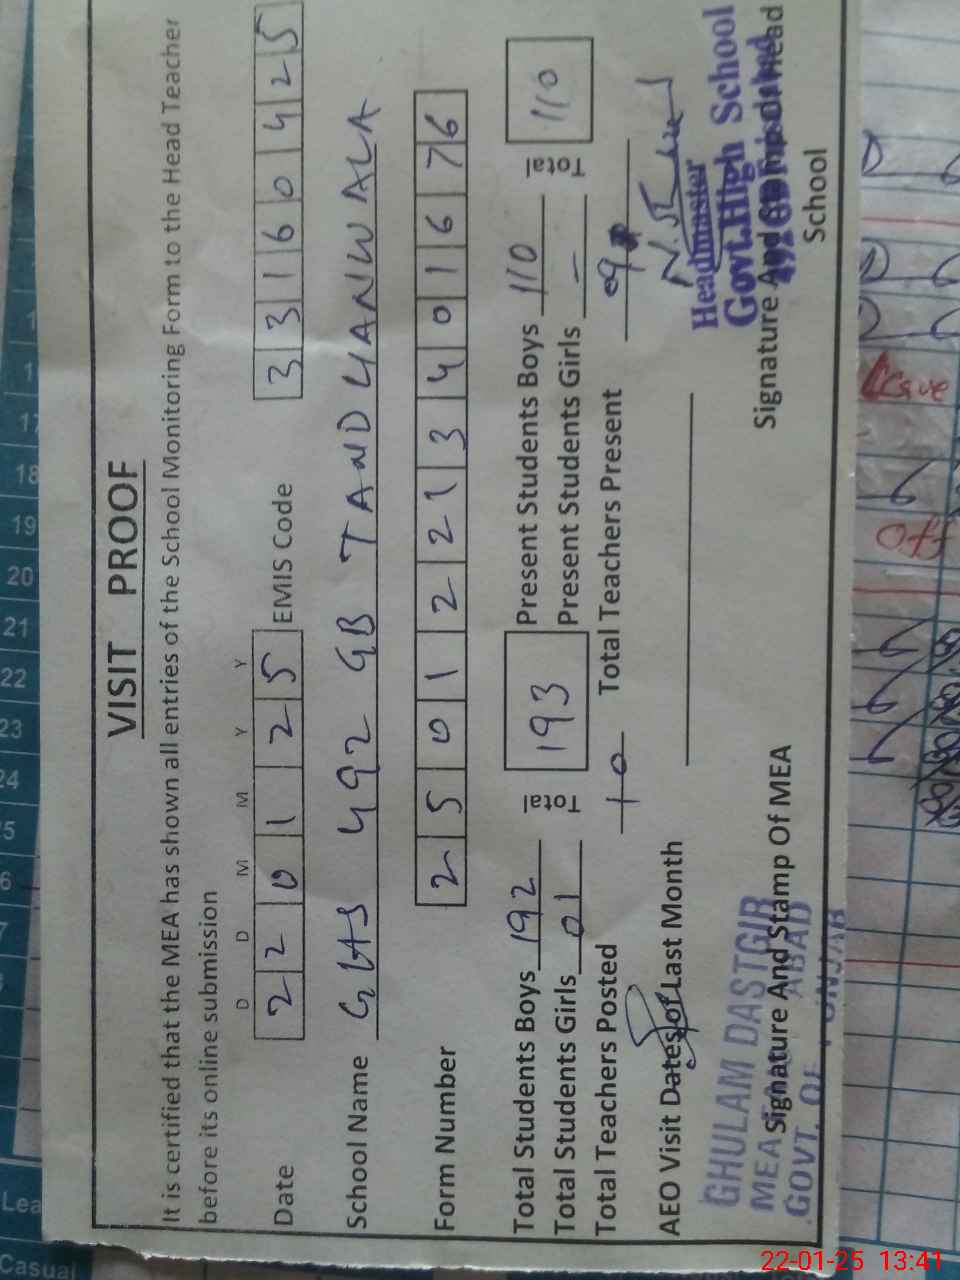 VISIT PROOF
It is certified that the MEA has shown all entries of the School Monitoring Form to the Head Teacher
before its online submission
D D M M Y Y
Date 2 2 0 1 2 5 EMIS Code 3 3 1 6 0 4 2 5
School Name GHS 492 GB TANDLIANWALA
Form Number 2 5 0 1 2 2 1 3 4 0 1 6 7 6
Total Students Boys 192 Total 193 Present Students Boys 110 Total 110
Total Students Girls 01 Present Students Girls –
Total Teachers Posted 10 Total Teachers Present 9
AEO Visit Dates of Last Month
GHULAM DASTGIR
MEA
GOVT. OF
Signature And Stamp Of MEA
Headmaster
Govt.High School
Signature And Stamp of Head
School
Leave
Off
17
18
19
20
21
22
23
24
Lea
Casual
22-01-25 13:41